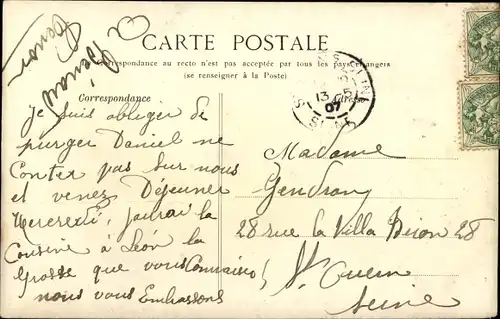 CARTE POSTALE
Correspondance au recto n'est pas acceptée par tous les pays étrangers
(se renseigner à la Poste)
Correspondance
Adresse
13
07
Je suis obliger de
purger Daniel ne
Conter pas sur nous
et venez Déjeuner
Mercredi, jaurai la
Cousine à Léon la
Grosse que vous Connaisse !
nous vous Embrassons
Madame
Gendron
28 rue la Villa Biron 28
St Ouen
Seine